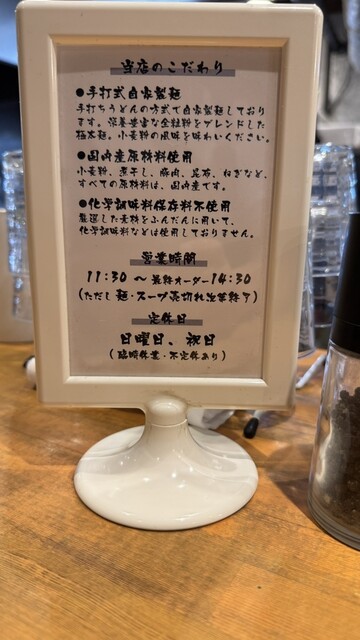 当店のこだわり
●手打式自家製麺
手打ちうどんの方式で自家製麺しており
ます。栄養豊富な全粒粉をブレンドした
極太麺。小麦粉の風味を味わいください。
●国内産原材料使用
小麦粉、煮干し、豚肉、昆布、ねぎなど、
すべての原材料は、国内産です。
●化学調味料保存料不使用
厳選した素材をふんだんに用いて、
化学調味料などは使用しておりません。
営業時間
11:30 ~ 最終オーダー14:30
(ただし 麺・スープ売切れ次第終了)
定休日
日曜日、祝日
(臨時休業・不定休あり)